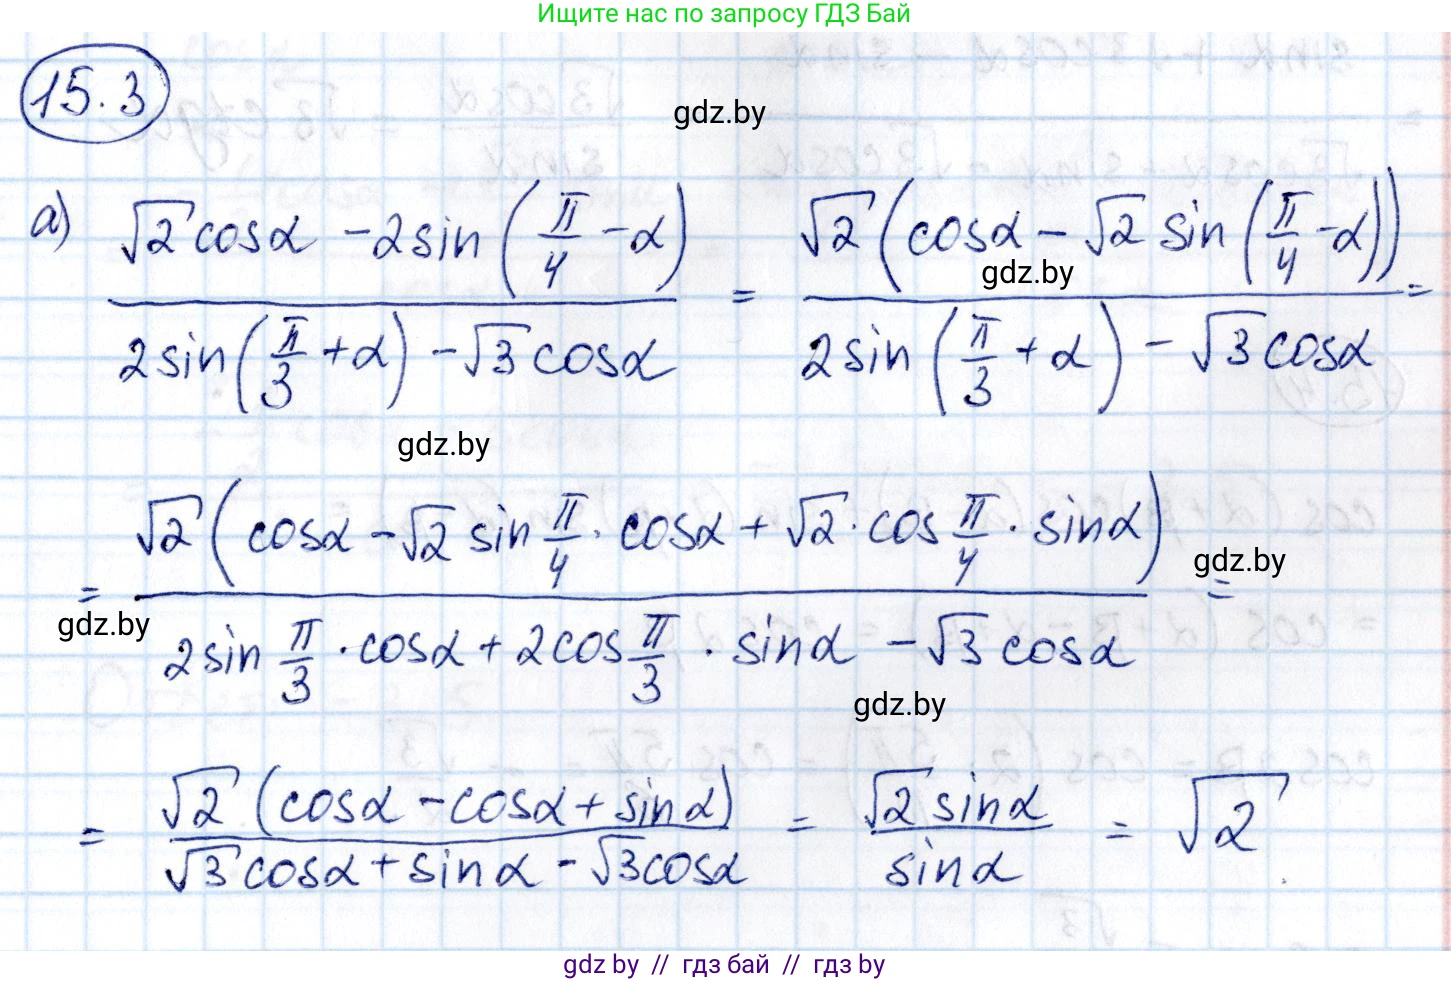 Ищите нас по запросу ГДЗ Бай
15.3
gdz.by
а) (√2 cosα - 2 sin(π/4 - α)) / (2 sin(π/3 + α) - √3 cosα) = (√2 (cosα - √2 sin(π/4 - α))) / (2 sin(π/3 + α) - √3 cosα) =
gdz.by
gdz.by
= (√2 (cosα - √2 sin π/4 · cosα + √2 · cos π/4 · sinα)) / (2 sin π/3 · cosα + 2 cos π/3 · sinα - √3 cosα) =
gdz.by
gdz.by
gdz.by
= (√2 (cosα - cosα + sinα)) / (√3 cosα + sinα - √3 cosα) = (√2 sinα) / (sinα) = √2
gdz.by // гдз бай // гдз by